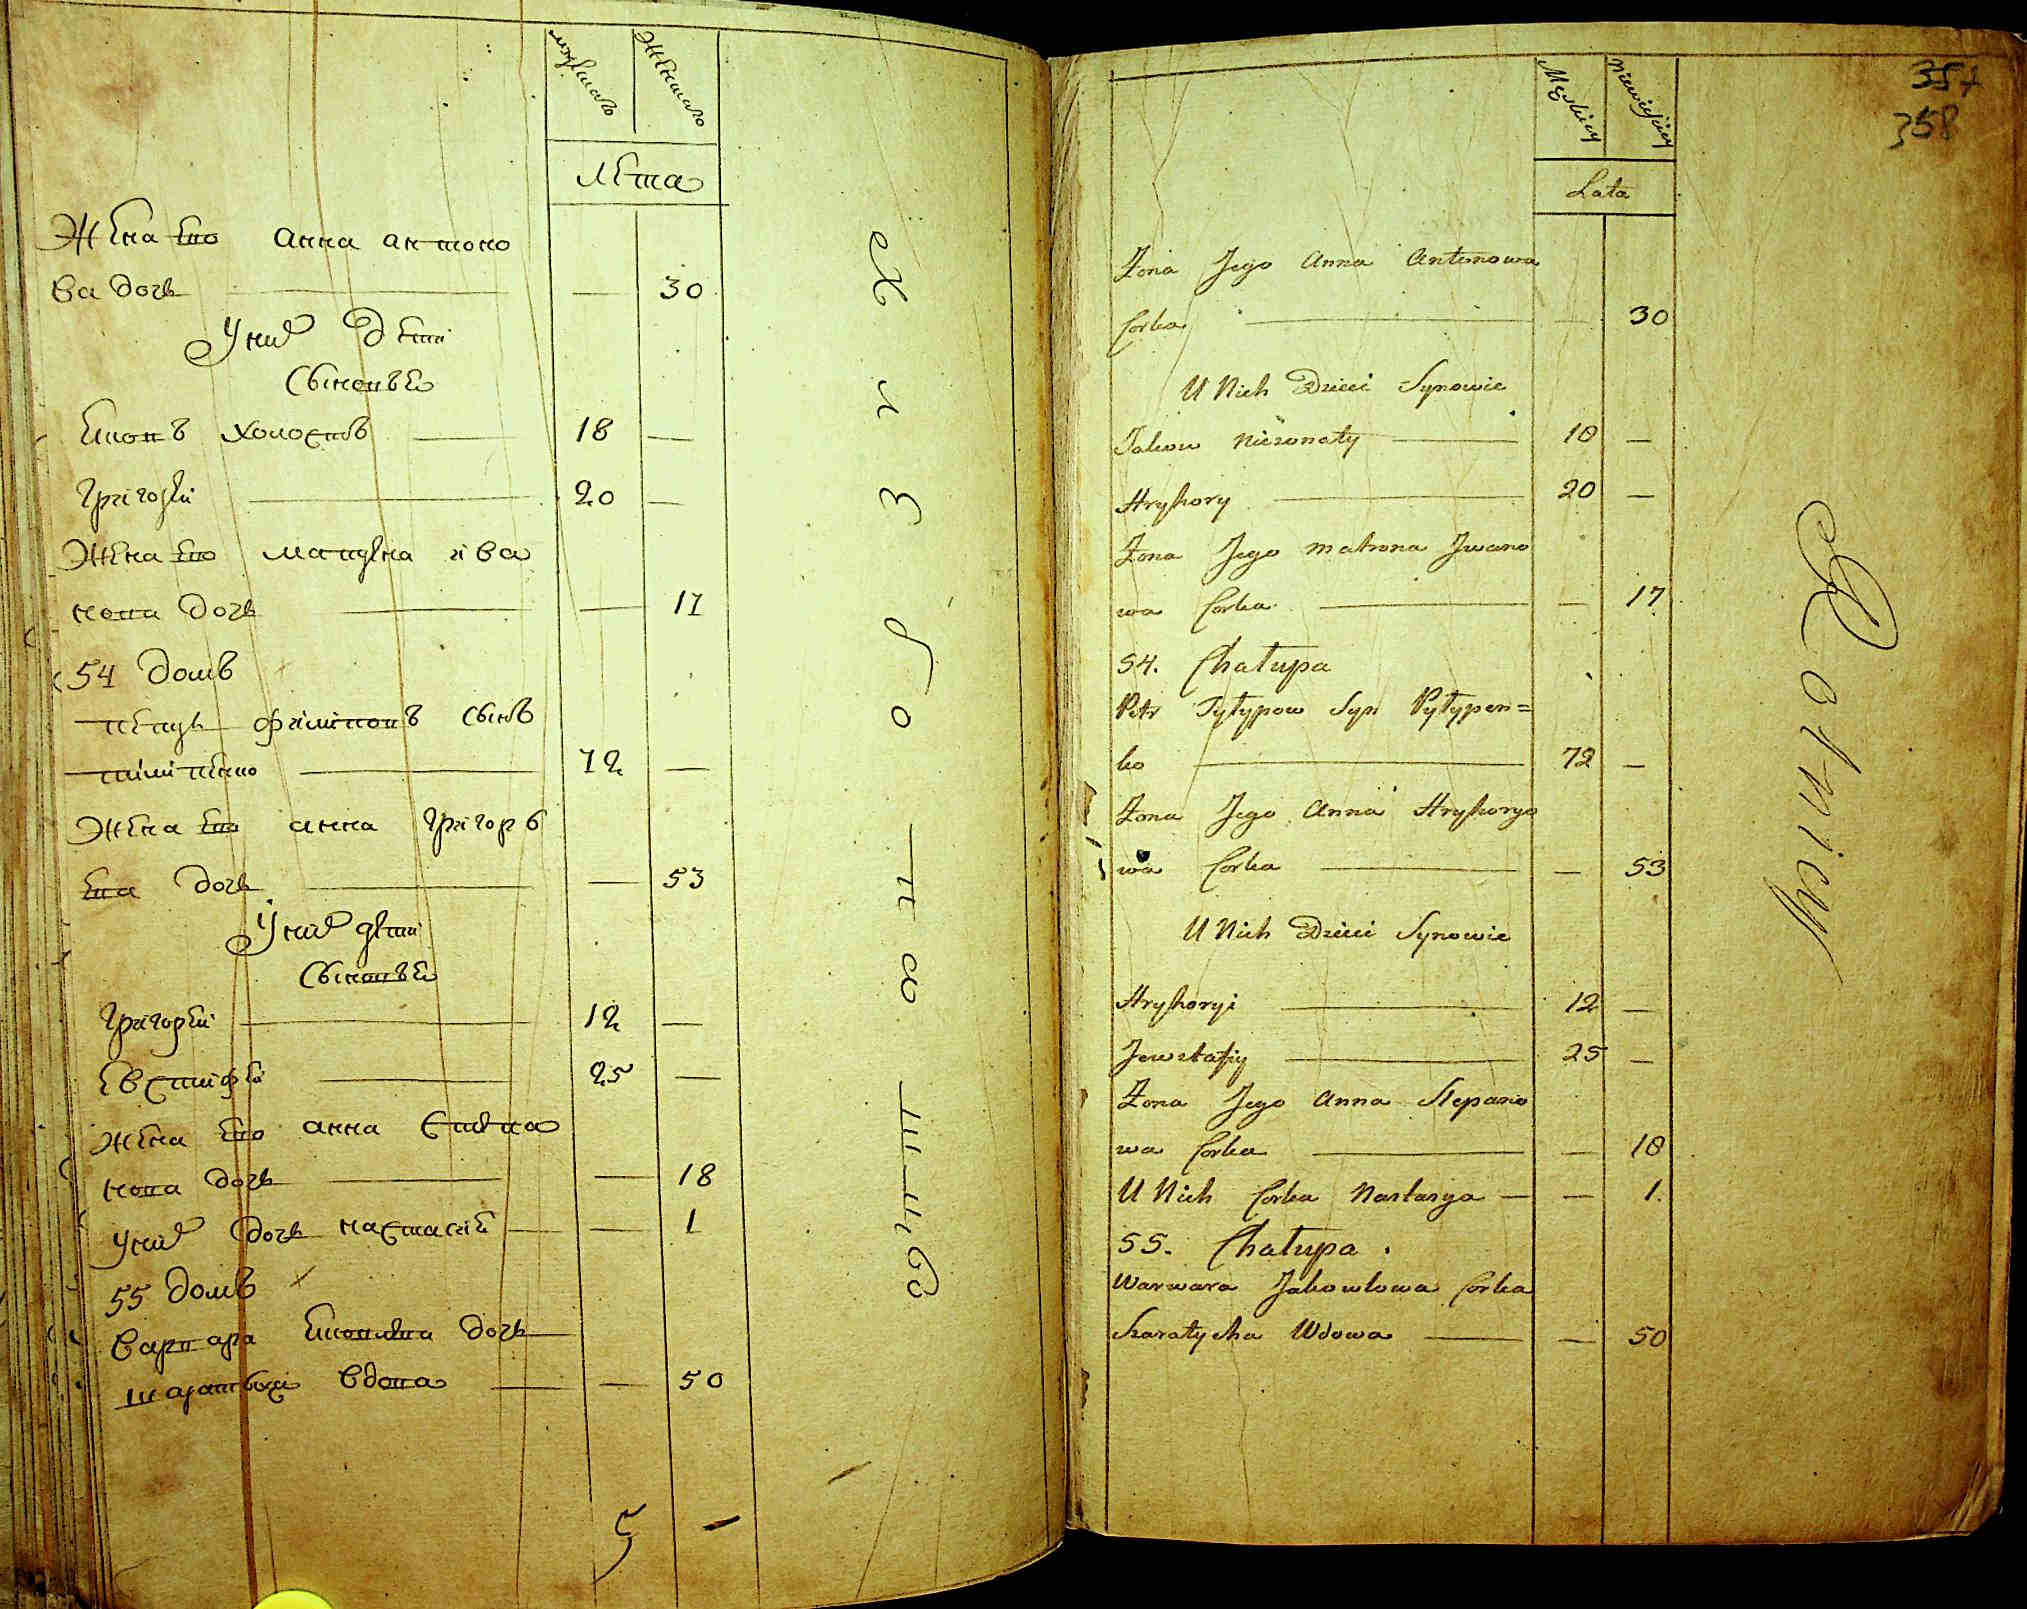 мужеска женска
Лета
Жена его анна антоно
ва дочь 30
У них дети
Сыновья
Яковъ холостъ 18 —
Григорей 20 —
Жена его матрена ива
нова дочь — 17
54 домъ
петръ филиповъ сынъ
пилипенко 72 —
Жена его анна Григорь
ева дочь — 53
У них дети
Сыновья
Григорей 12 —
Евстафей 25 —
жена его анна Степа
нова дочь — 18
у них дочь настасия — 1
55 домъ
варвара яковлева дочь
вдова — 50
5 —
357
358
Męskiey Niewieściey
Lata
Żona Jego Anna Antonowa
Corka 30
U Nich Dzieci Synowie
Jakow Nieżonaty 18 —
Hryhory 20 —
Żona Jego Matrona Jwano
wa Corka — 17
54. Chałupa
Petr Pyłypow Syn Pyłypen=
ko 72 —
Żona Jego Anna Hryhorye
wa Corka — 53
U Nich Dzieci Synowie
Hryhoryi 12 —
Jewstafiy 25 —
Żona Jego Anna Stepano
wa Corka — 18
U Nich Corka Nastasya — — 1.
55. Chałupa.
Warwara Jakowlowa Corka
Wdowa — 50
Rotmicy